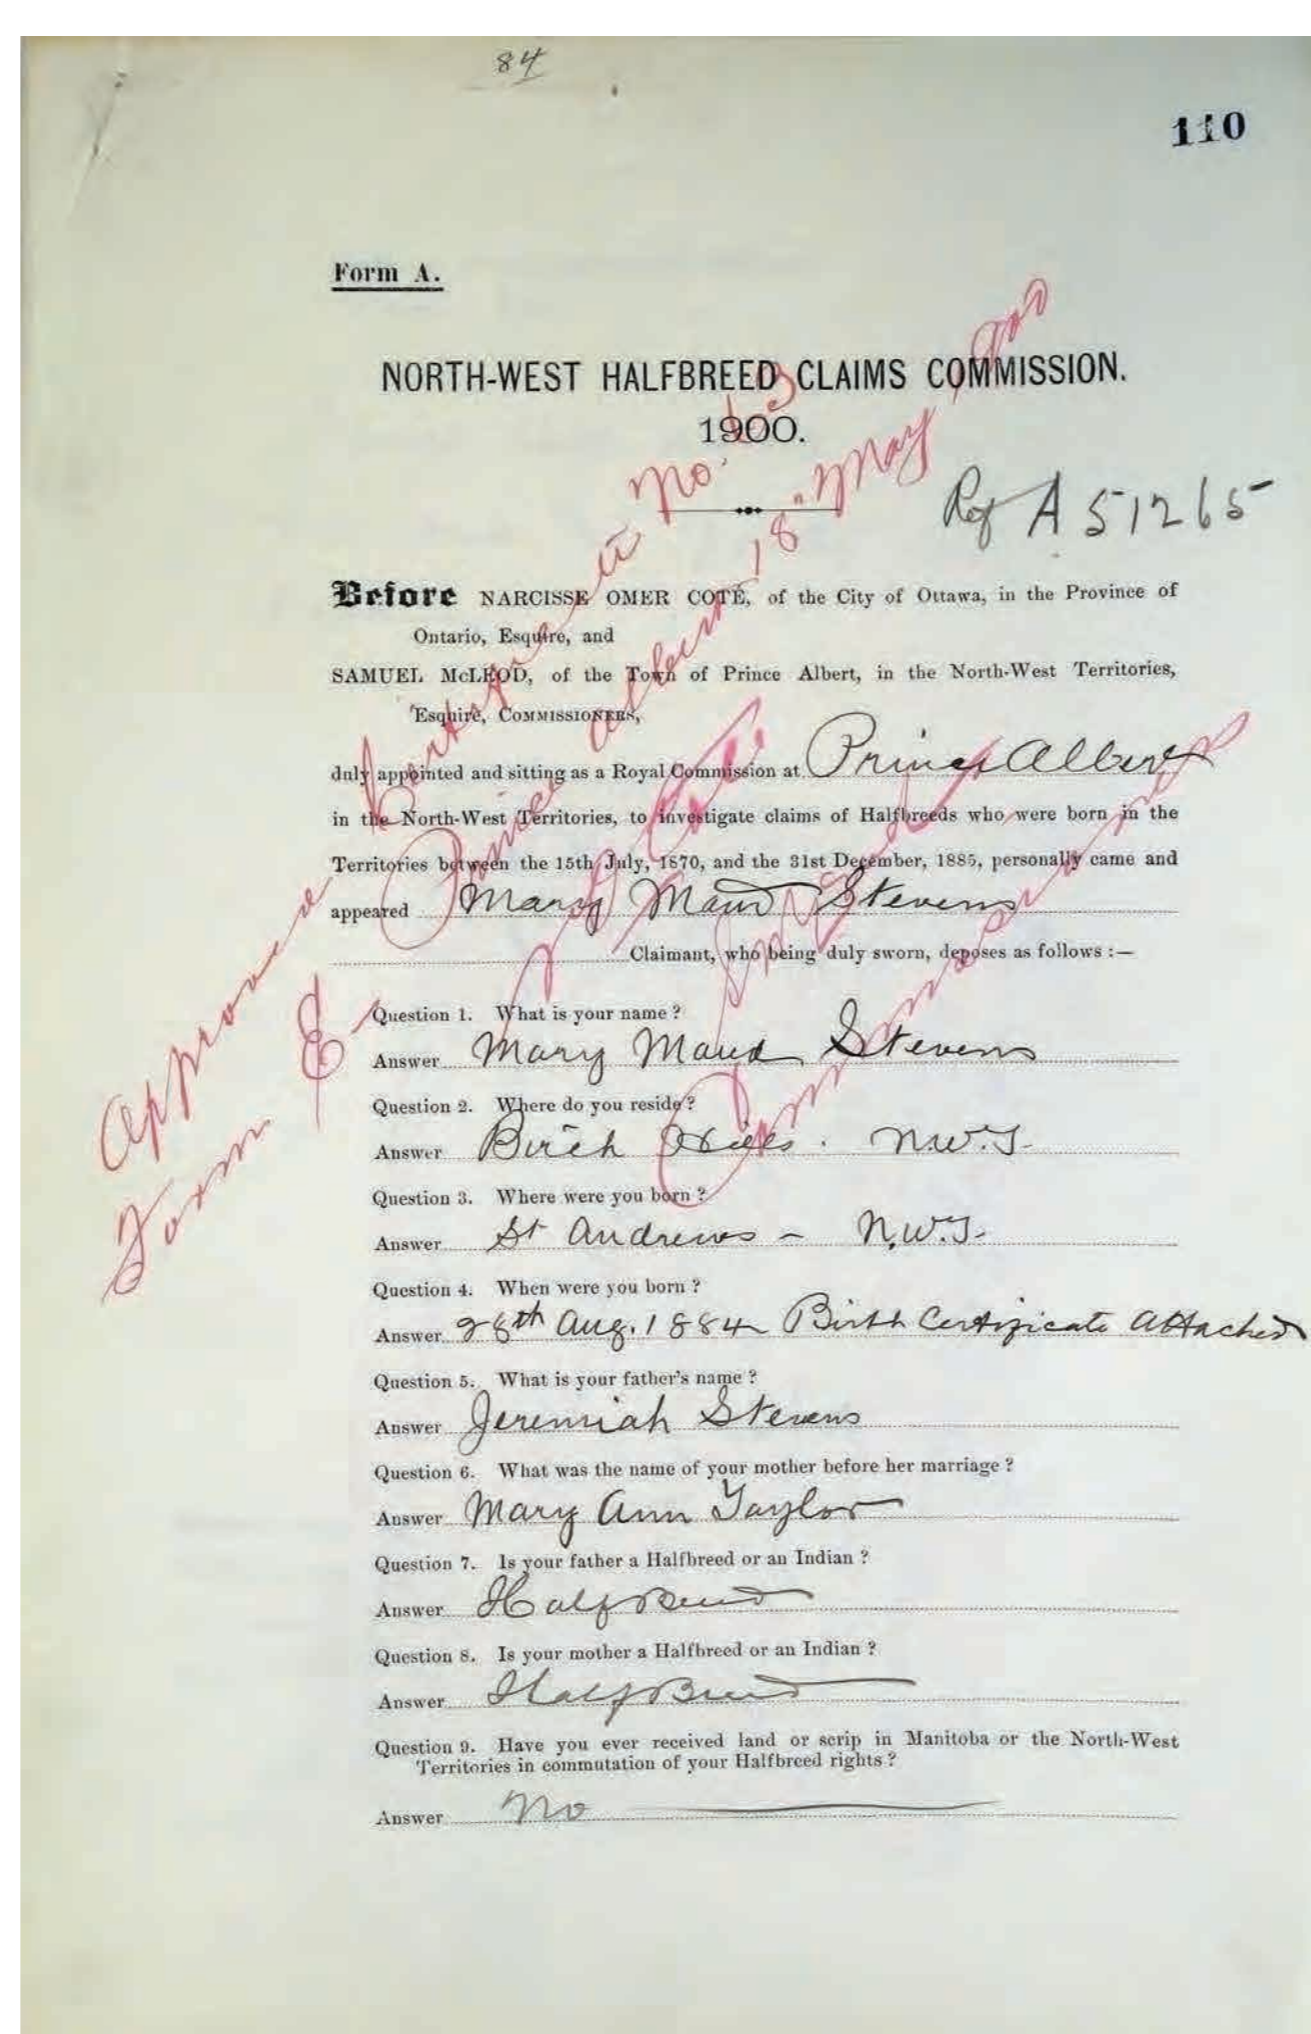 84
110
Form A.
NORTH-WEST HALFBREED CLAIMS COMMISSION.
1900.
Ref A 51265
Before NARCISSE OMER COTÉ, of the City of Ottawa, in the Province of
Ontario, Esquire, and
SAMUEL McLEOD, of the Town of Prince Albert, in the North-West Territories,
Esquire, COMMISSIONERS,
duly appointed and sitting as a Royal Commission at Prince Albert
in the North-West Territories, to investigate claims of Halfbreeds who were born in the
Territories between the 15th July, 1870, and the 31st December, 1885, personally came and
appeared Mary Maud Stevens
Claimant, who being duly sworn, deposes as follows :—
Question 1. What is your name ?
Answer Mary Maud Stevens
Question 2. Where do you reside ?
Answer Birch Hills. N.W.T.
Question 3. Where were you born ?
Answer St Andrews - N.W.T.
Question 4. When were you born ?
Answer 28th Aug. 1884 Birth Certificate Attached
Question 5. What is your father's name ?
Answer Jeremiah Stevens
Question 6. What was the name of your mother before her marriage ?
Answer Mary Ann Taylor
Question 7. Is your father a Halfbreed or an Indian ?
Answer HalfBreed
Question 8. Is your mother a Halfbreed or an Indian ?
Answer HalfBreed
Question 9. Have you ever received land or scrip in Manitoba or the North-West
Territories in commutation of your Halfbreed rights ?
Answer No
Approved Certificate No.
Form E Prince Albert 18" May 900
Commissioners